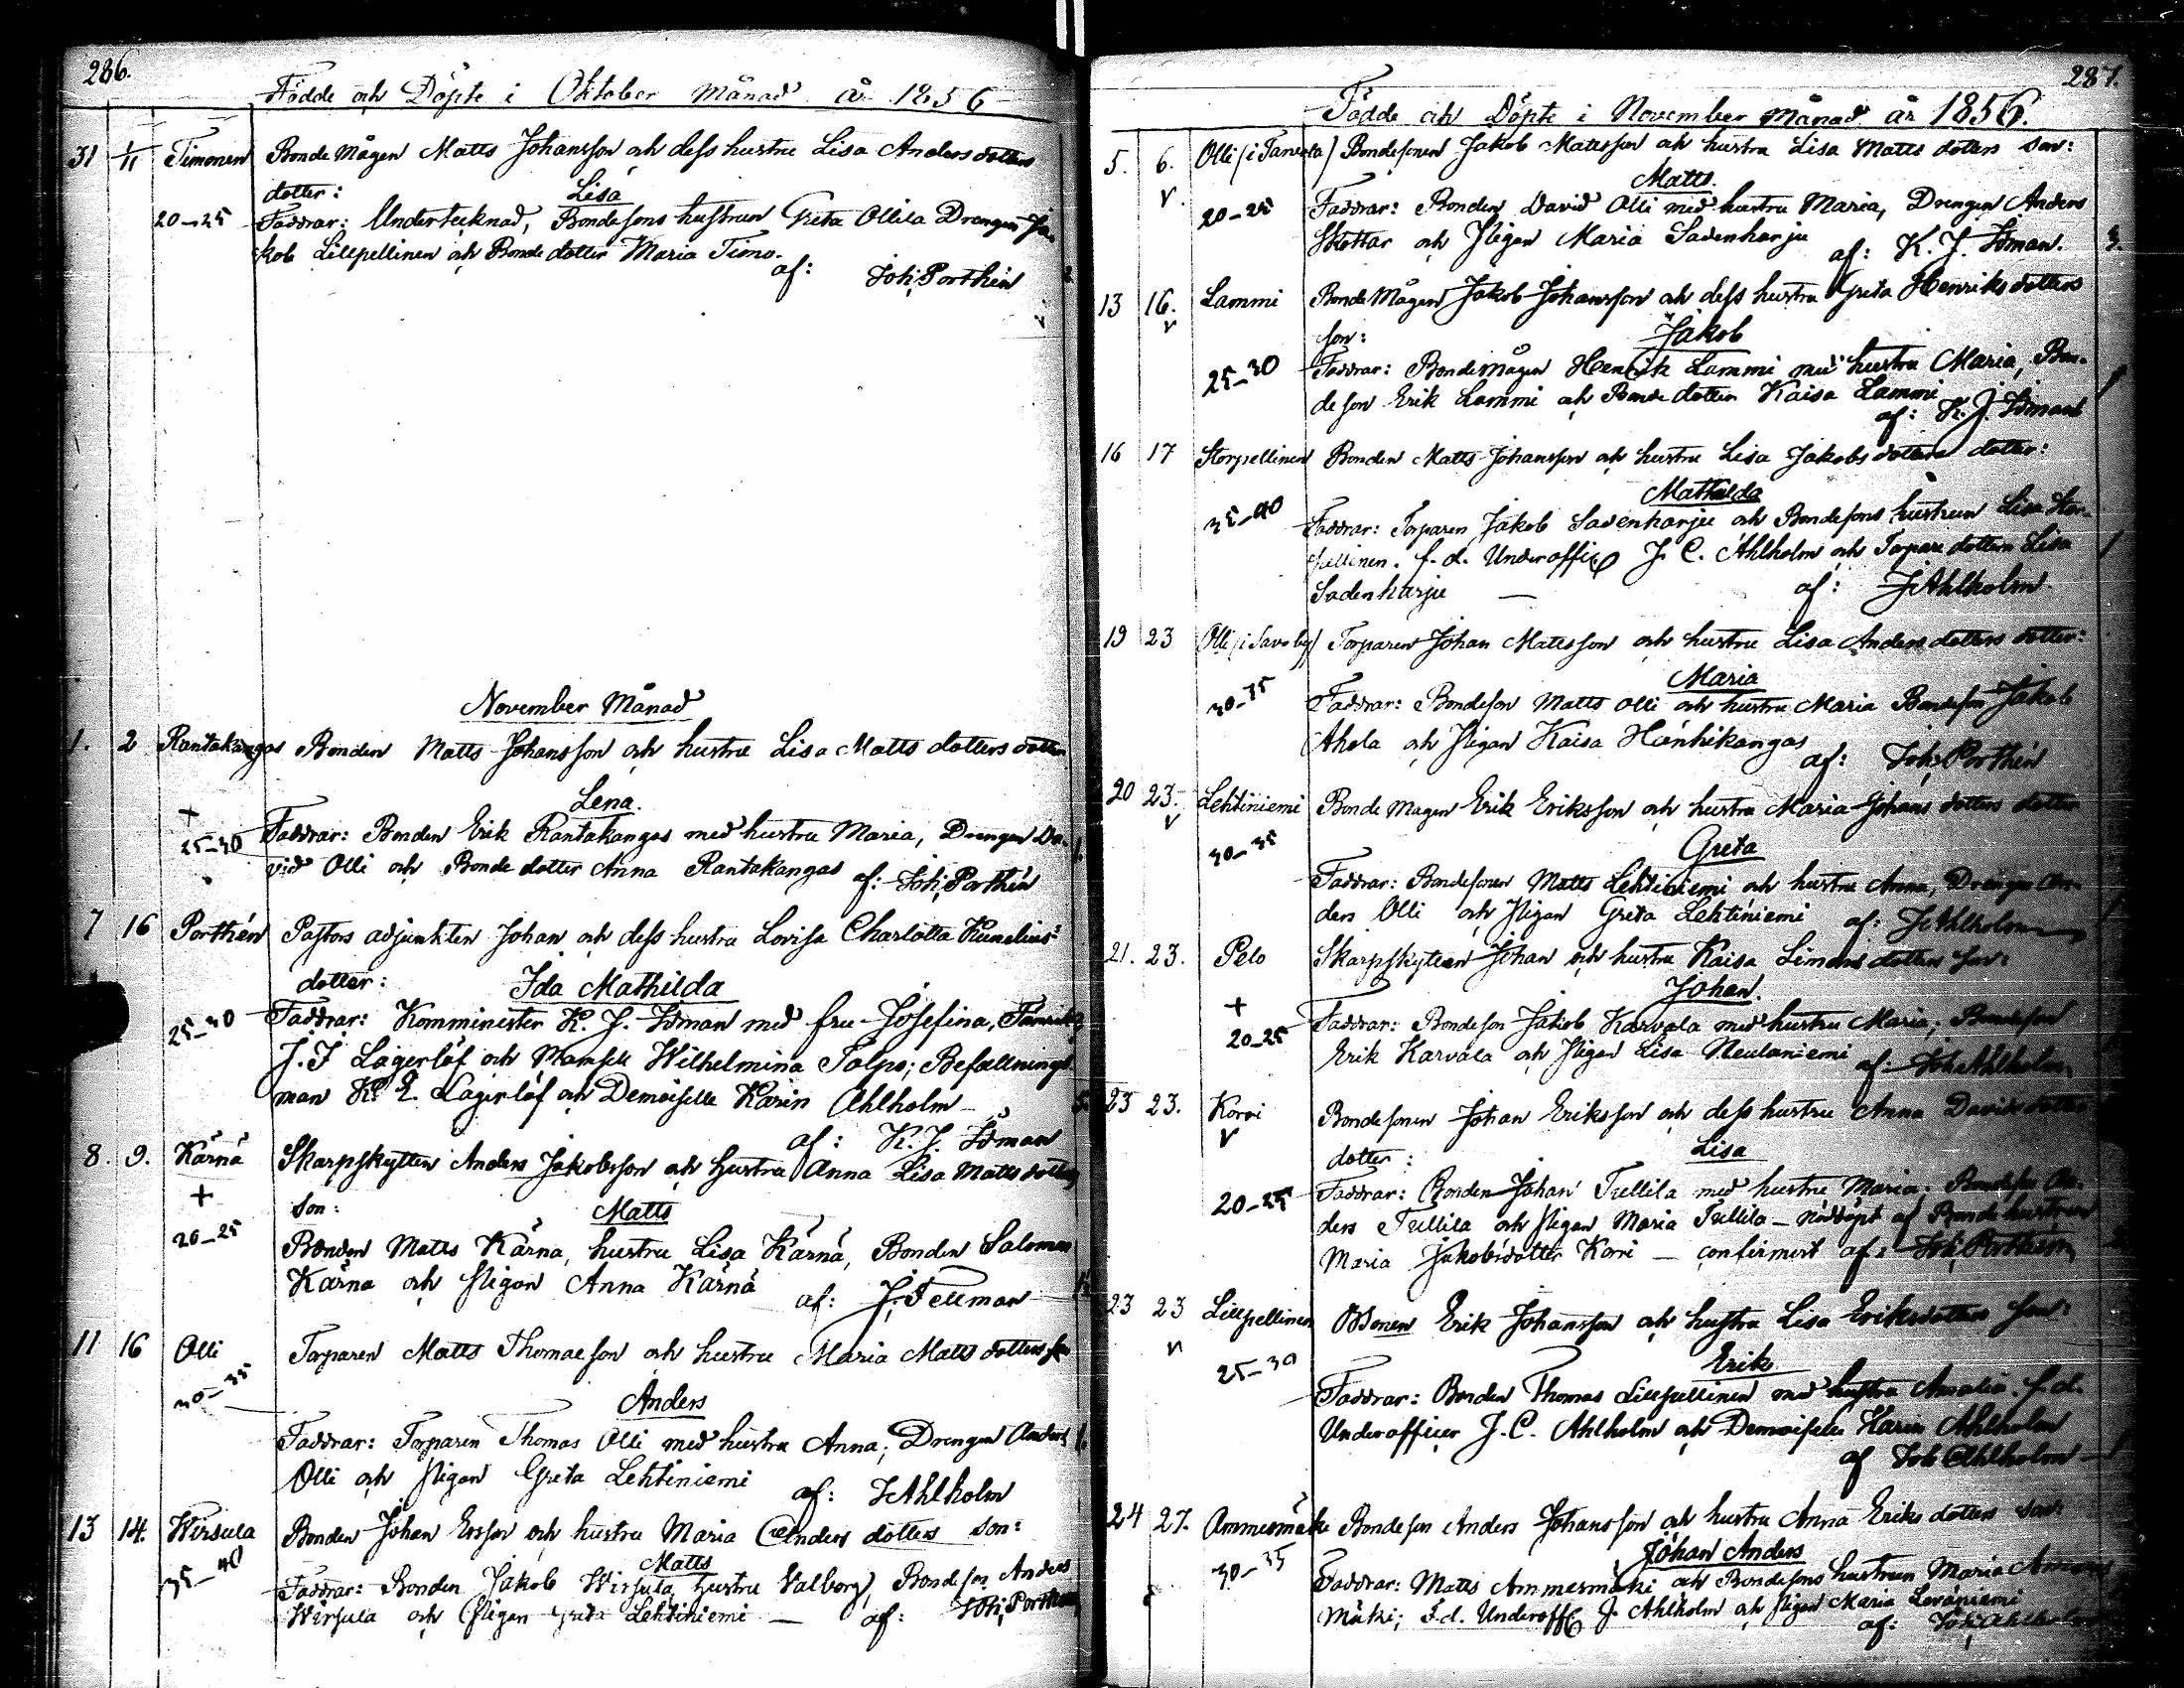 286.
Födde och Döpte i Oktober Månad år 1856
31 1/11 Timonen Bonde Mågen Matts Johansson och dess hustru Lisa Anders dotters
dotter: Lisa
20-25 Faddrar: Undertecknad, Bondesons hustrun Greta Ollila Drengen Ja-
kob Lillpellinen och Bonde dotter Maria Timo.
af: Joh: Porthén
November Månad
1. 2 Rantakangas Bonden Matts Johansson och hustru Lisa Matts dotters dotter
Lena.
+
25-30 Faddrar: Bonden Erik Rantakangas med hustru Maria, Drengen Da-
vid Olli och Bonde dotter Anna Rantakangas af: Joh: Porthén
7 16 Porthén Pastors adjunkten Johan och dess hustru Lovisa Charlotta
dotter: Ida Mathilda
25-30 Faddrar: Komminister K. J. Idman med fru Josefina,
J. F Lagerlöf och Mamsell Wilhelmina Salpo; Befallnings
man K. E. Lagerlöf och Demoiselle Karin Ahlholm
af: K. J. Idman
8. 9. Kärnä Skarpskytten Anders Jakobsson och Hustru Anna Lisa Matts dotters
+ son: Matts
20-25 Bonden Matts Kärnä, hustru Lisa Kärnä, Bonden Salomon
Kärnä och Pigan Anna Kärnä af: J. Fellman
11 16 Olli Torparen Matts Thomasson och hustru Maria Matts dotters son
30-35 Anders
Faddrar: Torparen Thomas Olli med hustru Anna; Drengen Anders
Olli och Pigan Greta Lehtiniemi af: J Ahlholm
13 14. Wirsula Bonden Johan Ersson och hustru Maria Anders dotters son:
35-40 Matts
Faddrar: Bonden Jakob Wirsula, hustru Valborg, Bondeson Anders
Wirsula och Pigan Greta Lehtiniemi — af: Joh: Porthén
287.
Födde och Döpte i November Månad år 1856.
5. 6. Olli (i Tarvola) Bondesonen Jakob Matsson och hustru Lisa Matts dotters son:
v Matts.
20-25 Faddrar: Bonden David Olli med hustru Maria, Drengen Anders
Skottar och Pigan Maria Sadenharju af: K. J. Idman.
13 16. Lammi Bonde Mågen Jakob Johansson och dess hustru Greta Henriks dotters
v son: Jakob
25-30 Faddrar: Bondemågen Henrik Lammi med hustru Maria, Bon-
deson Erik Lammi och Bonde dotter Kaisa Lammi
af: K. J. Idman
16 17 Storpellinen Bonden Matts Johansson och hustru Lisa Jakobs dotters dotter:
Mathilda
35-40 Faddrar: Torparen Jakob Sadenharju och Bondesons hustrun Lisa Stor-
pellinen. f. d. Underoffic J. C. Ahlholm och Torpare dottern Lisa
Sadenharju — af: J Ahlholm.
19 23 Olli (i Savoby) Torparen Johan Matsson och hustru Lisa Anders dotters dotter:
Maria
30-35 Faddrar: Bondeson Matts Olli och hustru Maria Bondeson Jakob
Ahola och Pigan Kaisa Hanhikangas
af: Joh: Porthén
20 23. Lehtiniemi Bonde Mågen Erik Eriksson och hustru Maria Johans dotters dotter
v Greta
30-35
Faddrar: Bondesonen Matts Lehtiniemi och hustru Anna, Drengen An-
ders Olli och Pigan Greta Lehtiniemi af: J Ahlholm
21. 23. Pelo Skarpskytten Johan och hustru Kaisa Simons dotters son:
+ Johan.
20-25 Faddrar: Bondeson Jakob Karvala med hustru Maria; Bondeson
Erik Karvala och Pigan Lisa Neulaniemi af: Joh Ahlholm
23 23. Korri Bondesonen Johan Eriksson och dess hustru Anna Davids dotters
v dotter: Lisa
20-25 Faddrar: Bonden Johan Tullila med hustru Maria; Bondeson An-
ders Tullila och Pigan Maria Tullila — Nöddöpt af Bonde hustrun
Maria Jakobsdotter Korri — confirmert af: Joh: Porthén
23 23 Lillpellinen Bdsonen Erik Johansson och hustru Lisa Eriksdotters son:
v Erik
25-30
Faddrar: Bonden Thomas Lillpellinen med hustru Amalia. f. d.
Underofficer J. C. Ahlholm och Demoiselle Karin Ahlholm
af Joh Ahlholm
24 27. Ammesmäki Bondeson Anders Johansson och hustru Anna Eriks dotters son:
30-35 Johan Anders
Faddrar: Matts Ammesmäki och Bondesons hustrun Maria Ammes
mäki; f. d. Underoff J. Ahlholm och Pigan Maria Leväniemi
af: Joh: Ahlholm